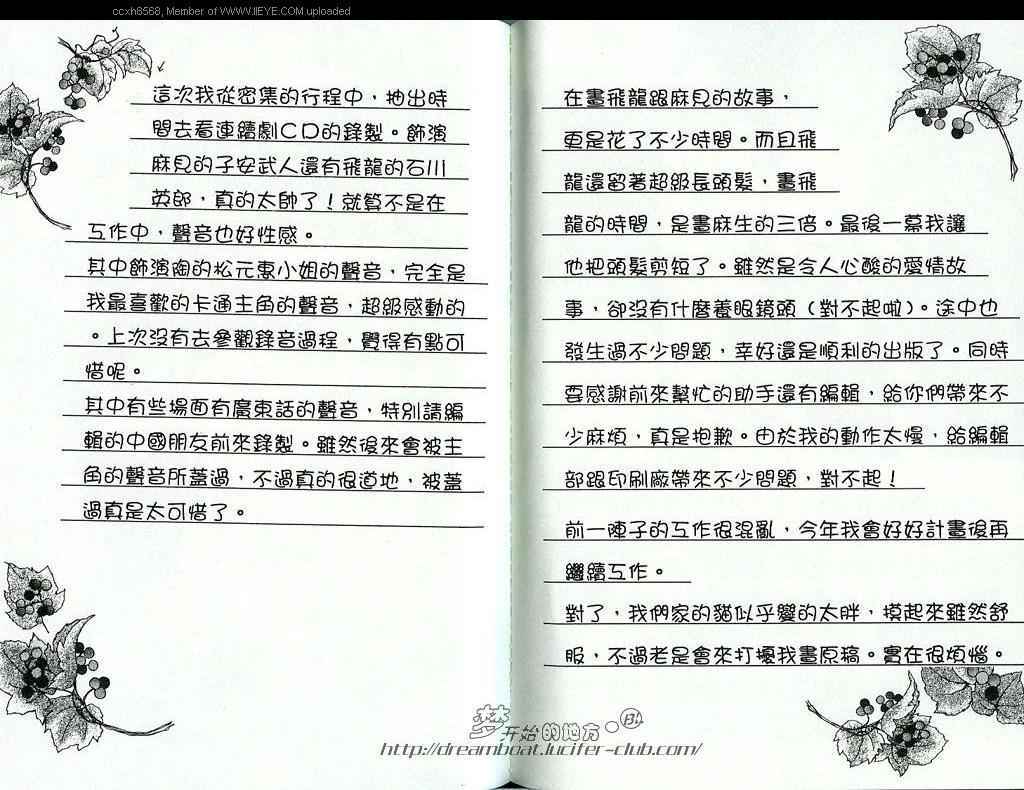 ccxh8568, Member of WWW.IIEYE.COM uploaded
這次我從密集的行程中，抽出時
間去看連續劇ＣＤ的錄製。飾演
麻見的子安武人還有飛龍的石川
英郎，真的太帥了！就算不是在
工作中，聲音也好性感。
其中飾演陶的松元惠小姐的聲音，完全是
我最喜歡的卡通主角的聲音，超級感動的
。上次沒有去參觀錄音過程，覺得有點可
惜呢。
其中有些場面有廣東話的聲音，特別請編
輯的中國朋友前來錄製。雖然後來會被主
角的聲音所蓋過，不過真的很道地，被蓋
過真是太可惜了。
在畫飛龍跟麻見的故事，
更是花了不少時間。而且飛
龍還留著超級長頭髮，畫飛
龍的時間，是畫麻生的三倍。最後一幕我讓
他把頭髮剪短了。雖然是令人心酸的愛情故
事，卻沒有什麼養眼鏡頭（對不起啦）。途中也
發生過不少問題，幸好還是順利的出版了。同時
要感謝前來幫忙的助手還有編輯，給你們帶來不
少麻煩，真是抱歉。由於我的動作太慢，給編輯
部跟印刷廠帶來不少問題，對不起！
前一陣子的工作很混亂，今年我會好好計畫後再
繼續工作。
對了，我們家的貓似乎變的太胖，摸起來雖然舒
服，不過老是會來打擾我畫原稿。實在很煩惱。
梦开始的地方 BL
http://dreamboat.lucifer-club.com/